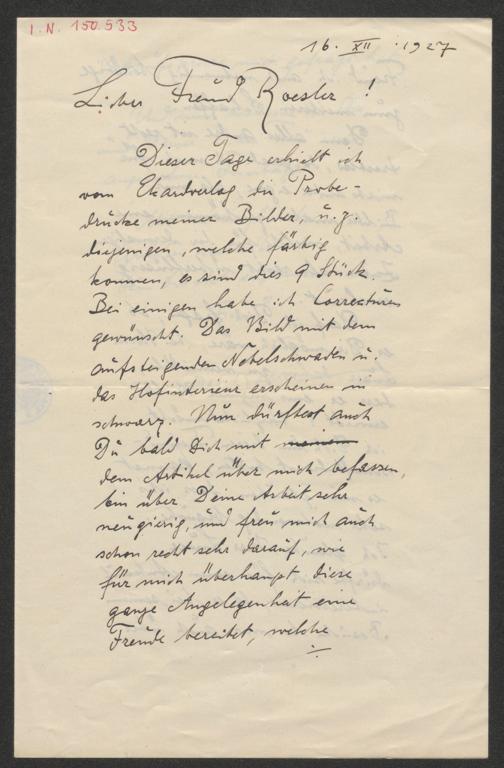 I.N. 150.533
16. XII. 1927
Lieber Freund Roessler!
Dieser Tage erhielt ich
vom Ekardverlag die Probe-
drücke meiner Bilder, u. z.
diejenigen, welche färbig
kommen, es sind dies 9 Stück.
Bei einigen habe ich Correcturen
gewünscht. Das Bild mit dem
aufsteigenden Nebelschwaden u.
das Hofinterieur erscheinen in
schwarz. Nun dürftest auch
Du bald Dich mit meinem
dem Artikel über mich befassen,
bin über Deine Arbeit sehr
neugierig, und freu mich auch
schon recht sehr darauf, wie
für mich überhaupt diese
ganze Angelegenheit eine
Freude bereitet, welche